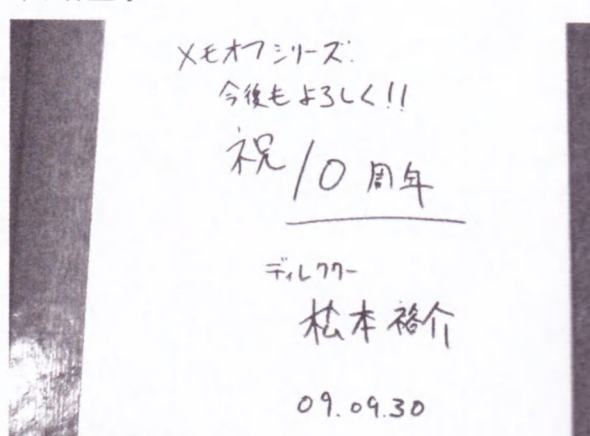 メモオフシリーズ.
今後もよろしく!!
祝 10周年
ディレクター
松本裕介
09.09.30